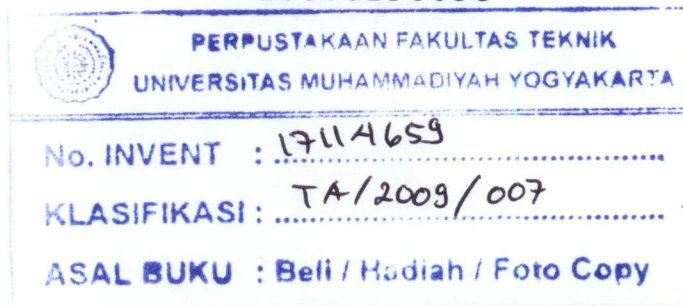 PERPUSTAKAAN FAKULTAS TEKNIK
UNIVERSITAS MUHAMMADIYAH YOGYAKARTA
No. INVENT : 17114659
KLASIFIKASI : TA/2009/007
ASAL BUKU : Beli / Hadiah / Foto Copy